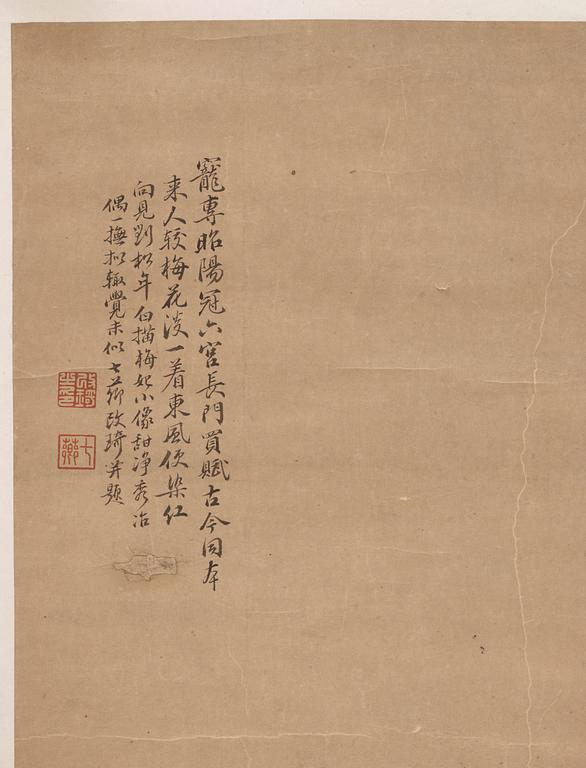 寵專昭陽冠六宮長門買賦古今同本
来人較梅花淡一着東風便染红
向見劉松年白描梅妃小像甜净秀冶
偶一撫拟輙覺未似七薌改琦并題
改琦之印
七薌